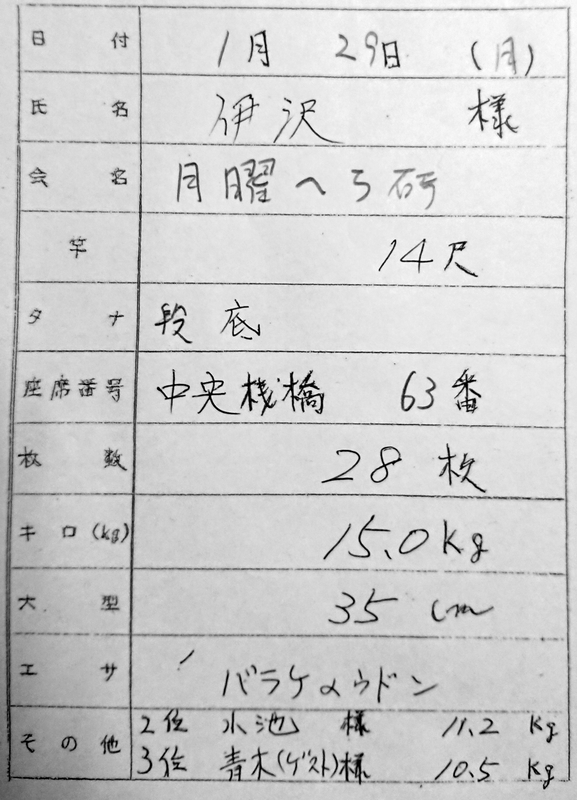 日付 1月 29日 (月)
氏名 伊沢 様
会名 月曜へら研
竿 14尺
タナ 段底
座席番号 中央桟橋 63番
枚数 28枚
キロ(kg) 15.0kg
大型 35cm
エサ バラケ×ウドン
その他 2位 小池 様 11.2 kg
3位 青木(ゲスト)様 10.5 kg